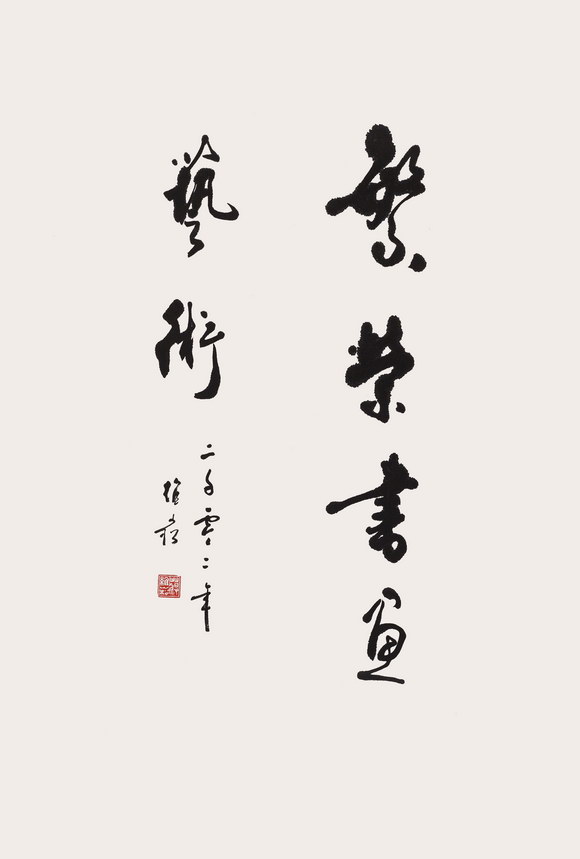 繁榮書畫
藝術
二千零二年